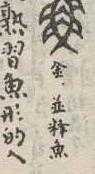 金。並釋魚
熟習魚形的人